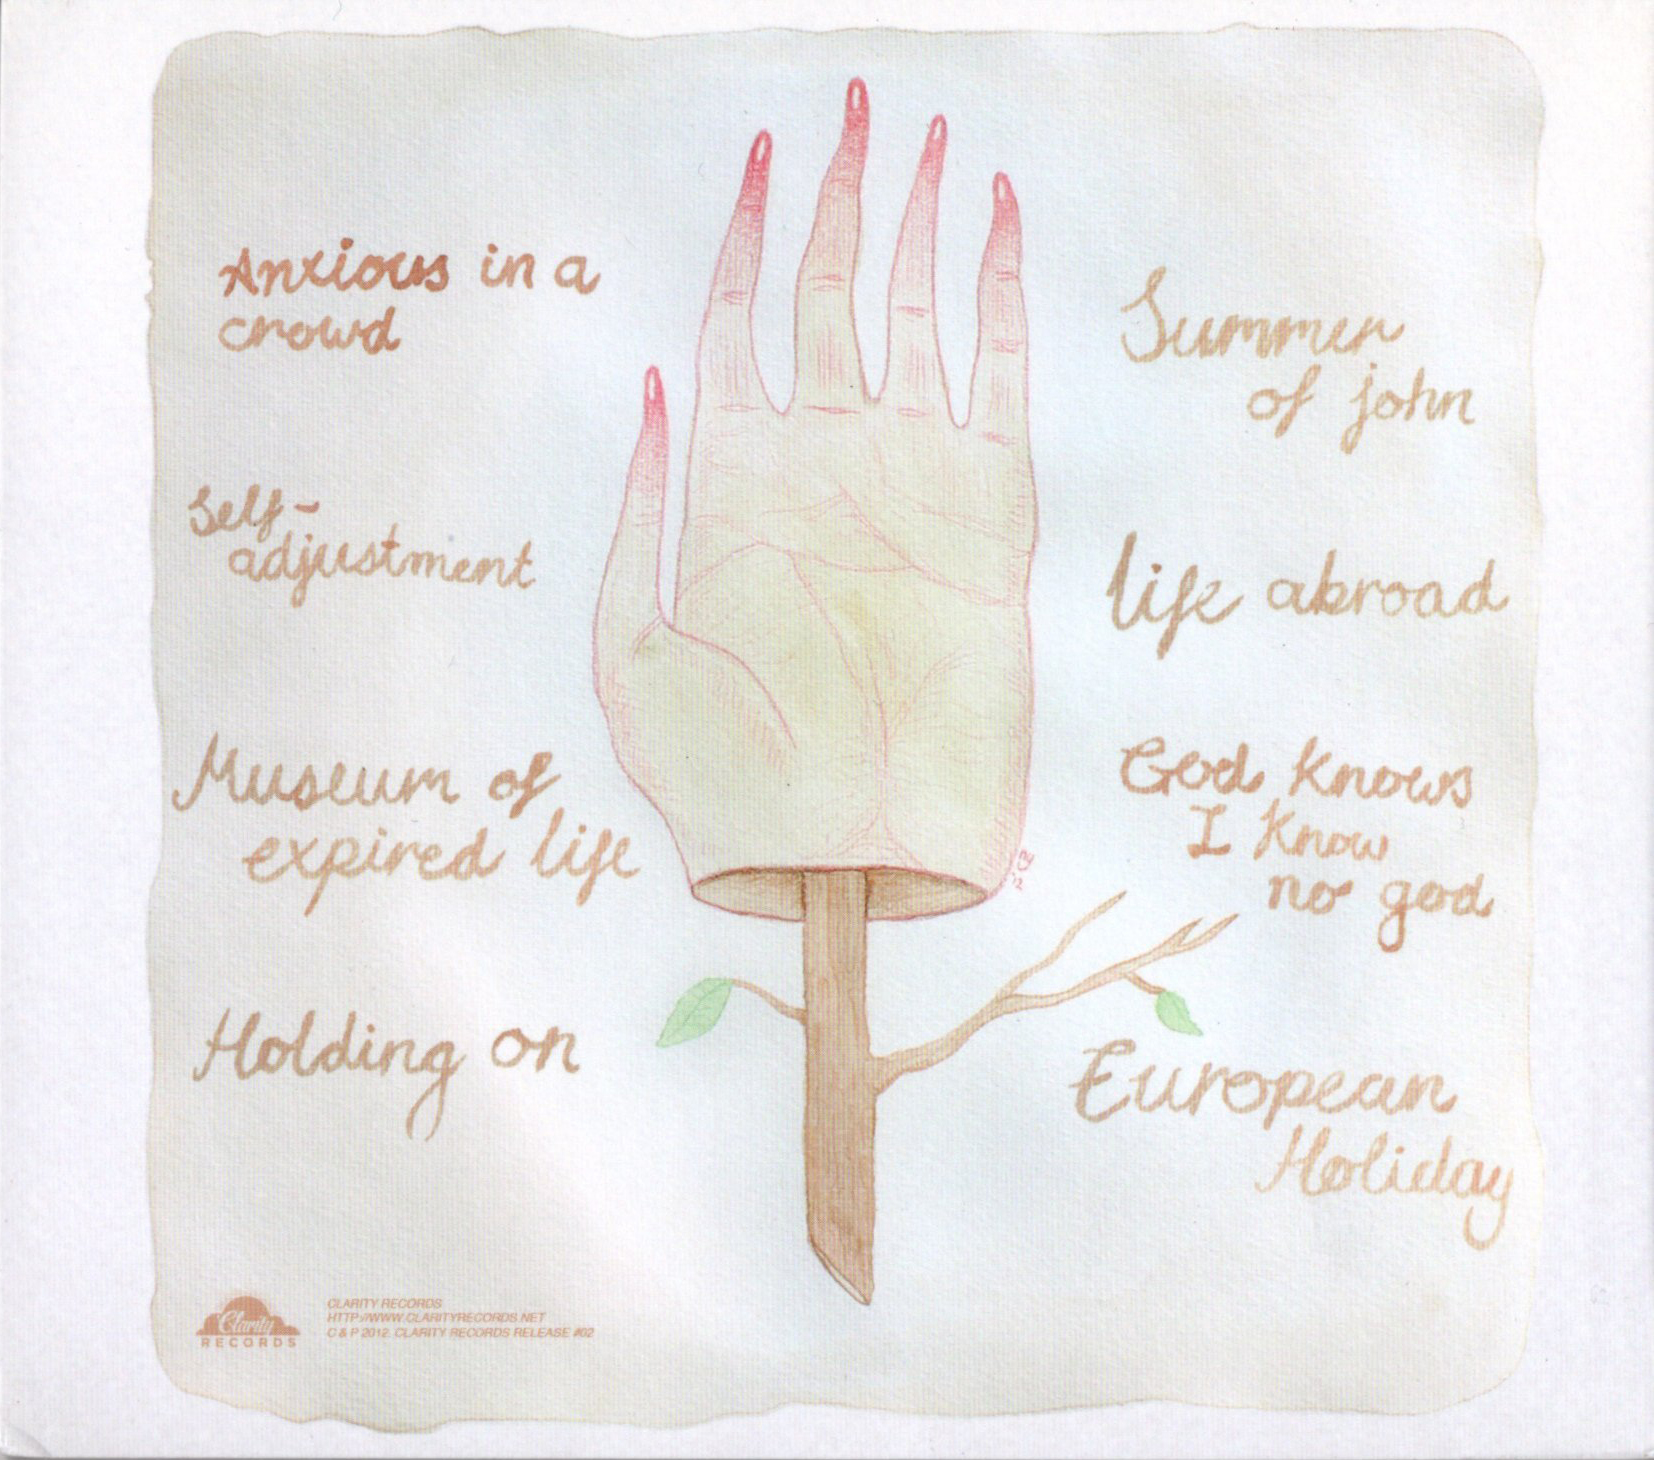 Anxious in a
crowd
Self-
adjustment
Museum of
expired life
Holding on
Summer
of john
life abroad
God knows
I know
no god
European
Holiday
Clarity
RECORDS
CLARITY RECORDS
HTTP://WWW.CLARITYRECORDS.NET
C & P 2012. CLARITY RECORDS RELEASE #02